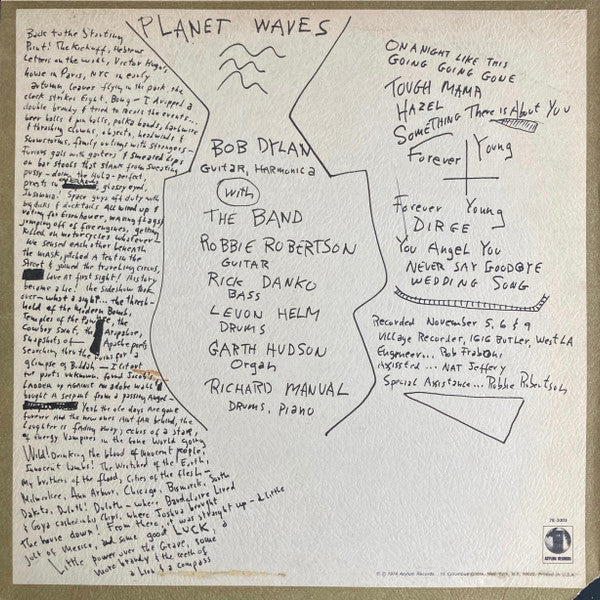 PLANET WAVES
Back to the Starting
Point! The Kickoff, Hebrew
Letters on the wall, Victor Hugo's
house in Paris, NYC in early
autumn, leaves flying in the park, the
clock strikes Eight, Bong — I dropped a
double brandy & tried to recall the events...
beer halls & pin balls, polka bands, barbwire
& thrashing clowns, objects, headwinds &
snowstorms, family outings with strangers —
Furious gals with garters & smeared lips
on bar stools that stank from sweating
pussy — doing the Hula — perfect,
priests in overhauls, glassy eyed,
Insomnia! Space guys off duty with
big dicks & ducktails all wired up &
voting for Eisenhower, waving flags &
jumping off of fire engines, getting
killed on motorcycles whatever —
We sensed each other beneath
the mask, pitched a tent in the
Street & joined the traveling circus,
Love at first sight! History
became a lie! the sideshow took
over — what a sight... the thresh-
hold of the Modern Bomb,
Temples of the Pawnee, the
Cowboy Saint, the Arapahoe,
snapshots of Apache poets
Searching thru the ruins for a
glimpse of Buddah — I lit out
for parts unknown, found Jacob's
Ladder up against an adobe wall &
bought a serpent from a passing Angel —
Yeah the ole days are gone
forever And the new ones Aint far behind, the
Laughter is fading away, echos of a star,
of Energy Vampires in the Gone World going
Wild! Drinking the blood of innocent people,
Innocent Lambs! The Wretched of the Earth,
My brothers of the flood, Cities of the flesh —
Milwaukee, Ann Arbor, Chicago, Bismarck, South
Dakota, Duluth! Duluth — where Baudelaire Lived
& Goya cashed in his Chips, where Joshua brought
the house down! From there, it was straight up — a Little
jolt of Mexico, and some good LUCK, a
Little power over the Grave, some
more brandy & the teeth of
a Lion & a compass
BOB DYLAN
Guitar, Harmonica
with
THE BAND
ROBBIE ROBERTSON
GUITAR
RICK DANKO
BASS
LEVON HELM
DRUMS
GARTH HUDSON
Organ
RICHARD MANUAL
DRUMS, PIANO
ON A NIGHT LIKE THIS
GOING GOING GONE
TOUGH MAMA
HAZEL
SOMETHING There is About You
Forever Young
Forever Young
DIRGE
You Angel You
NEVER SAY GOODBYE
WEDDING SONG
Recorded November 5, 6 & 9
Village Recorder, 1616 Butler, West LA
Engineer... Rob Fraboni
Assisted... NAT Jeffery
Special Assistance... Robbie Robertson
7E-1003
ASYLUM RECORDS